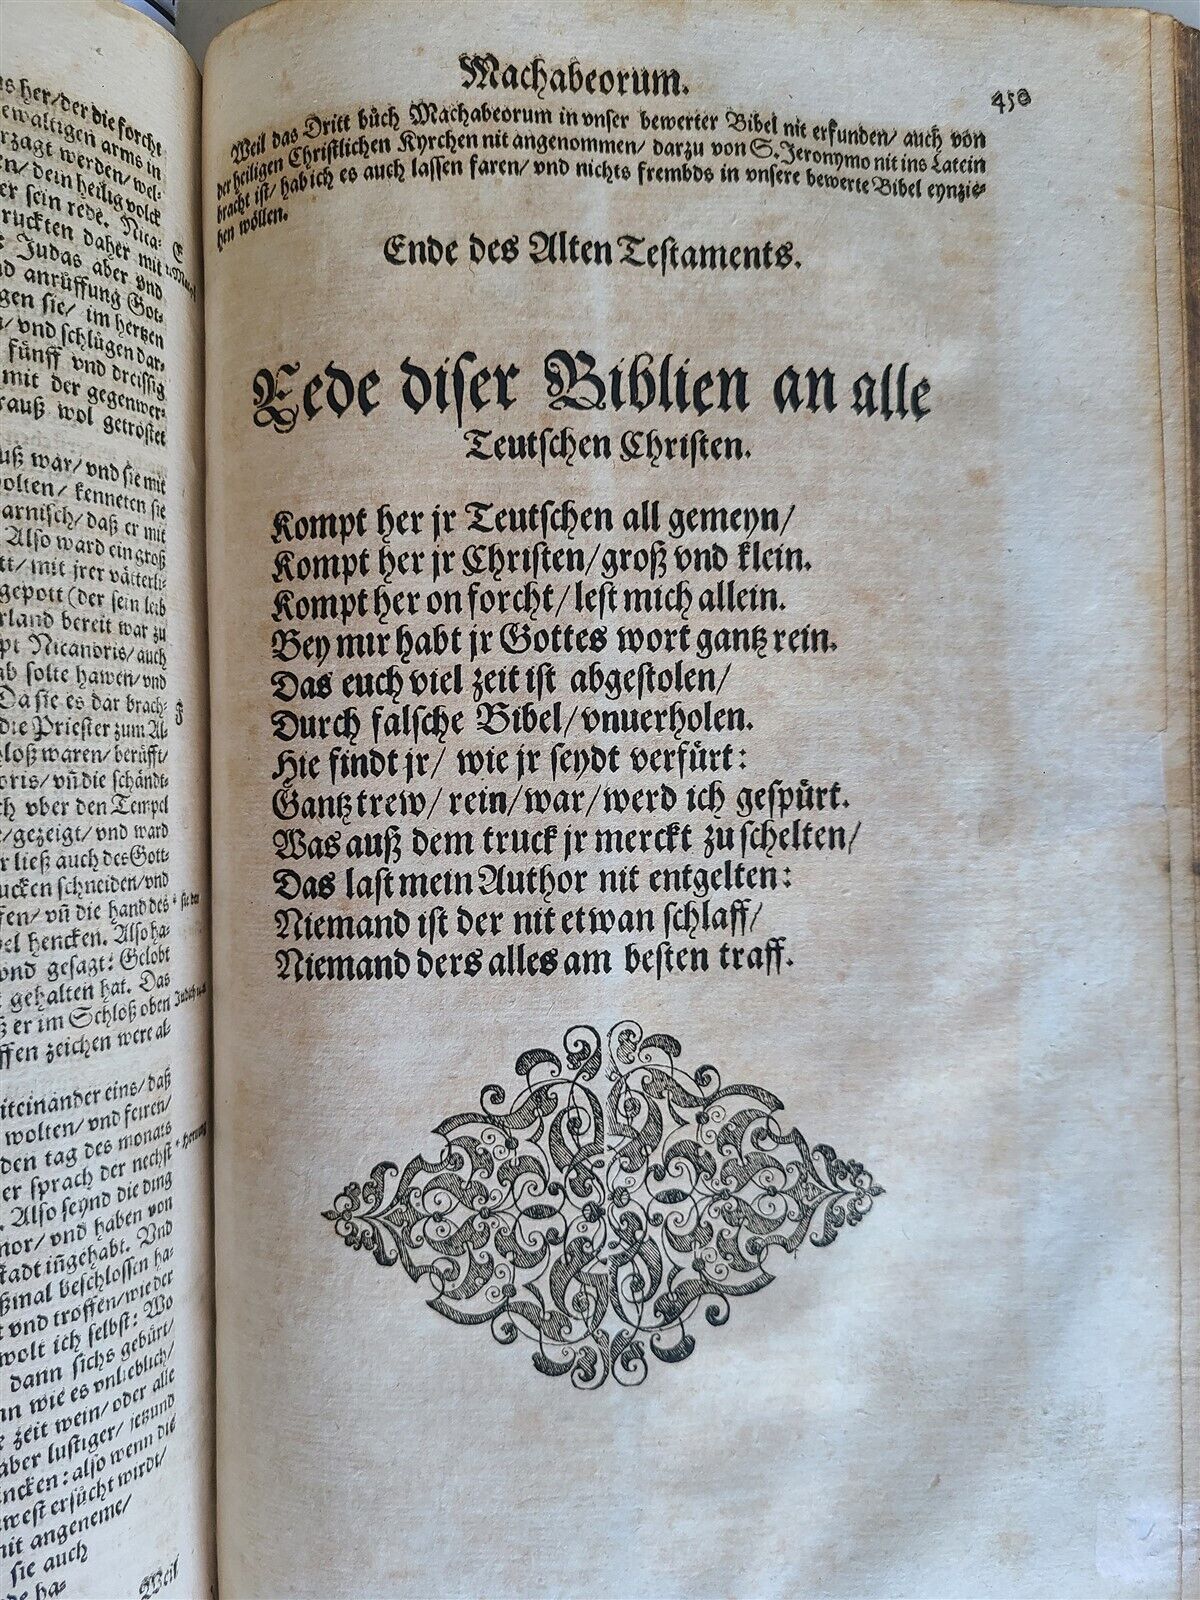 s her/der die forcht
ewaltigen arms in
rzagt werden/wel-
en/dein heilig volck
er sein rede. Nica-
ruckten daher mit
Judas aber vnd
d anrüffung Got-
gen sie/ im hertzen
/vnd schlügen dar-
fünff vnd dreissig
mit der gegenwer-
rauß wol getröstet
uß war/vnd sie mit
olten/ kenneten sie
arnisch/daß er mit
Also ward ein groß
tt/mit jrer vätterli-
gepott (der sein leib
rland bereit war zu
pt Nicandris/auch
ab solte hawen/vnd
Da sie es dar brach-
die Priester zum Al-
loß waren/berüfft/
oris/vñ die schändt-
ch vber den Tempel
/gezeigt/vnd ward
r ließ auch des Gott-
ucken schneiden/vnd
fen/vñ die hand des
el hencken. Also ha-
vnd gesagt: Gelobt
gehalten hat. Das
ß er im Schloß oben
ffen zeichen were al-
iteinander eins/daß
wolten/vnd feiren/
den tag des monats
er sprach der nechst
Also seynd die ding
nor/vnd haben von
stadt iñgehabt. Vnd
ßmal beschlossen ha-
t vnd troffen/wie der
wolt ich selbst: Wo
dann sichs gebürt/
nn wie es vnlieblich/
zeit wein/oder alle
aber lustiger/ jetzund
ncken: also wenn die
west ersücht wirdt/
nit angeneme/
sie auch
de ha-
Weil
Machabeorum.
450
Weil das Dritt büch Machabeorum in vnser bewerter Bibel nit erfunden/ auch von
der heiligen Christlichen Kyrchen nit angenommen/ darzu von S. Jeronymo nit ins Latein
bracht ist/ hab ich es auch lassen faren/ vnd nichts frembds in vnsere bewerte Bibel eynzie-
hen wöllen.
Ende des Alten Testaments.
Rede diser Biblien an alle
Teutschen Christen.
Kompt her jr Teutschen all gemeyn/
Kompt her jr Christen/groß vnd klein.
Kompt her on forcht/lest mich allein.
Bey mir habt jr Gottes wort gantz rein.
Das euch viel zeit ist abgestolen/
Durch falsche Bibel/vnuerholen.
Hie findt jr/ wie jr seydt verfürt:
Gantz trew/rein/war/werd ich gespürt.
Was auß dem truck jr merckt zu schelten/
Das last mein Author nit entgelten:
Niemand ist der nit etwan schlaff/
Niemand ders alles am besten traff.